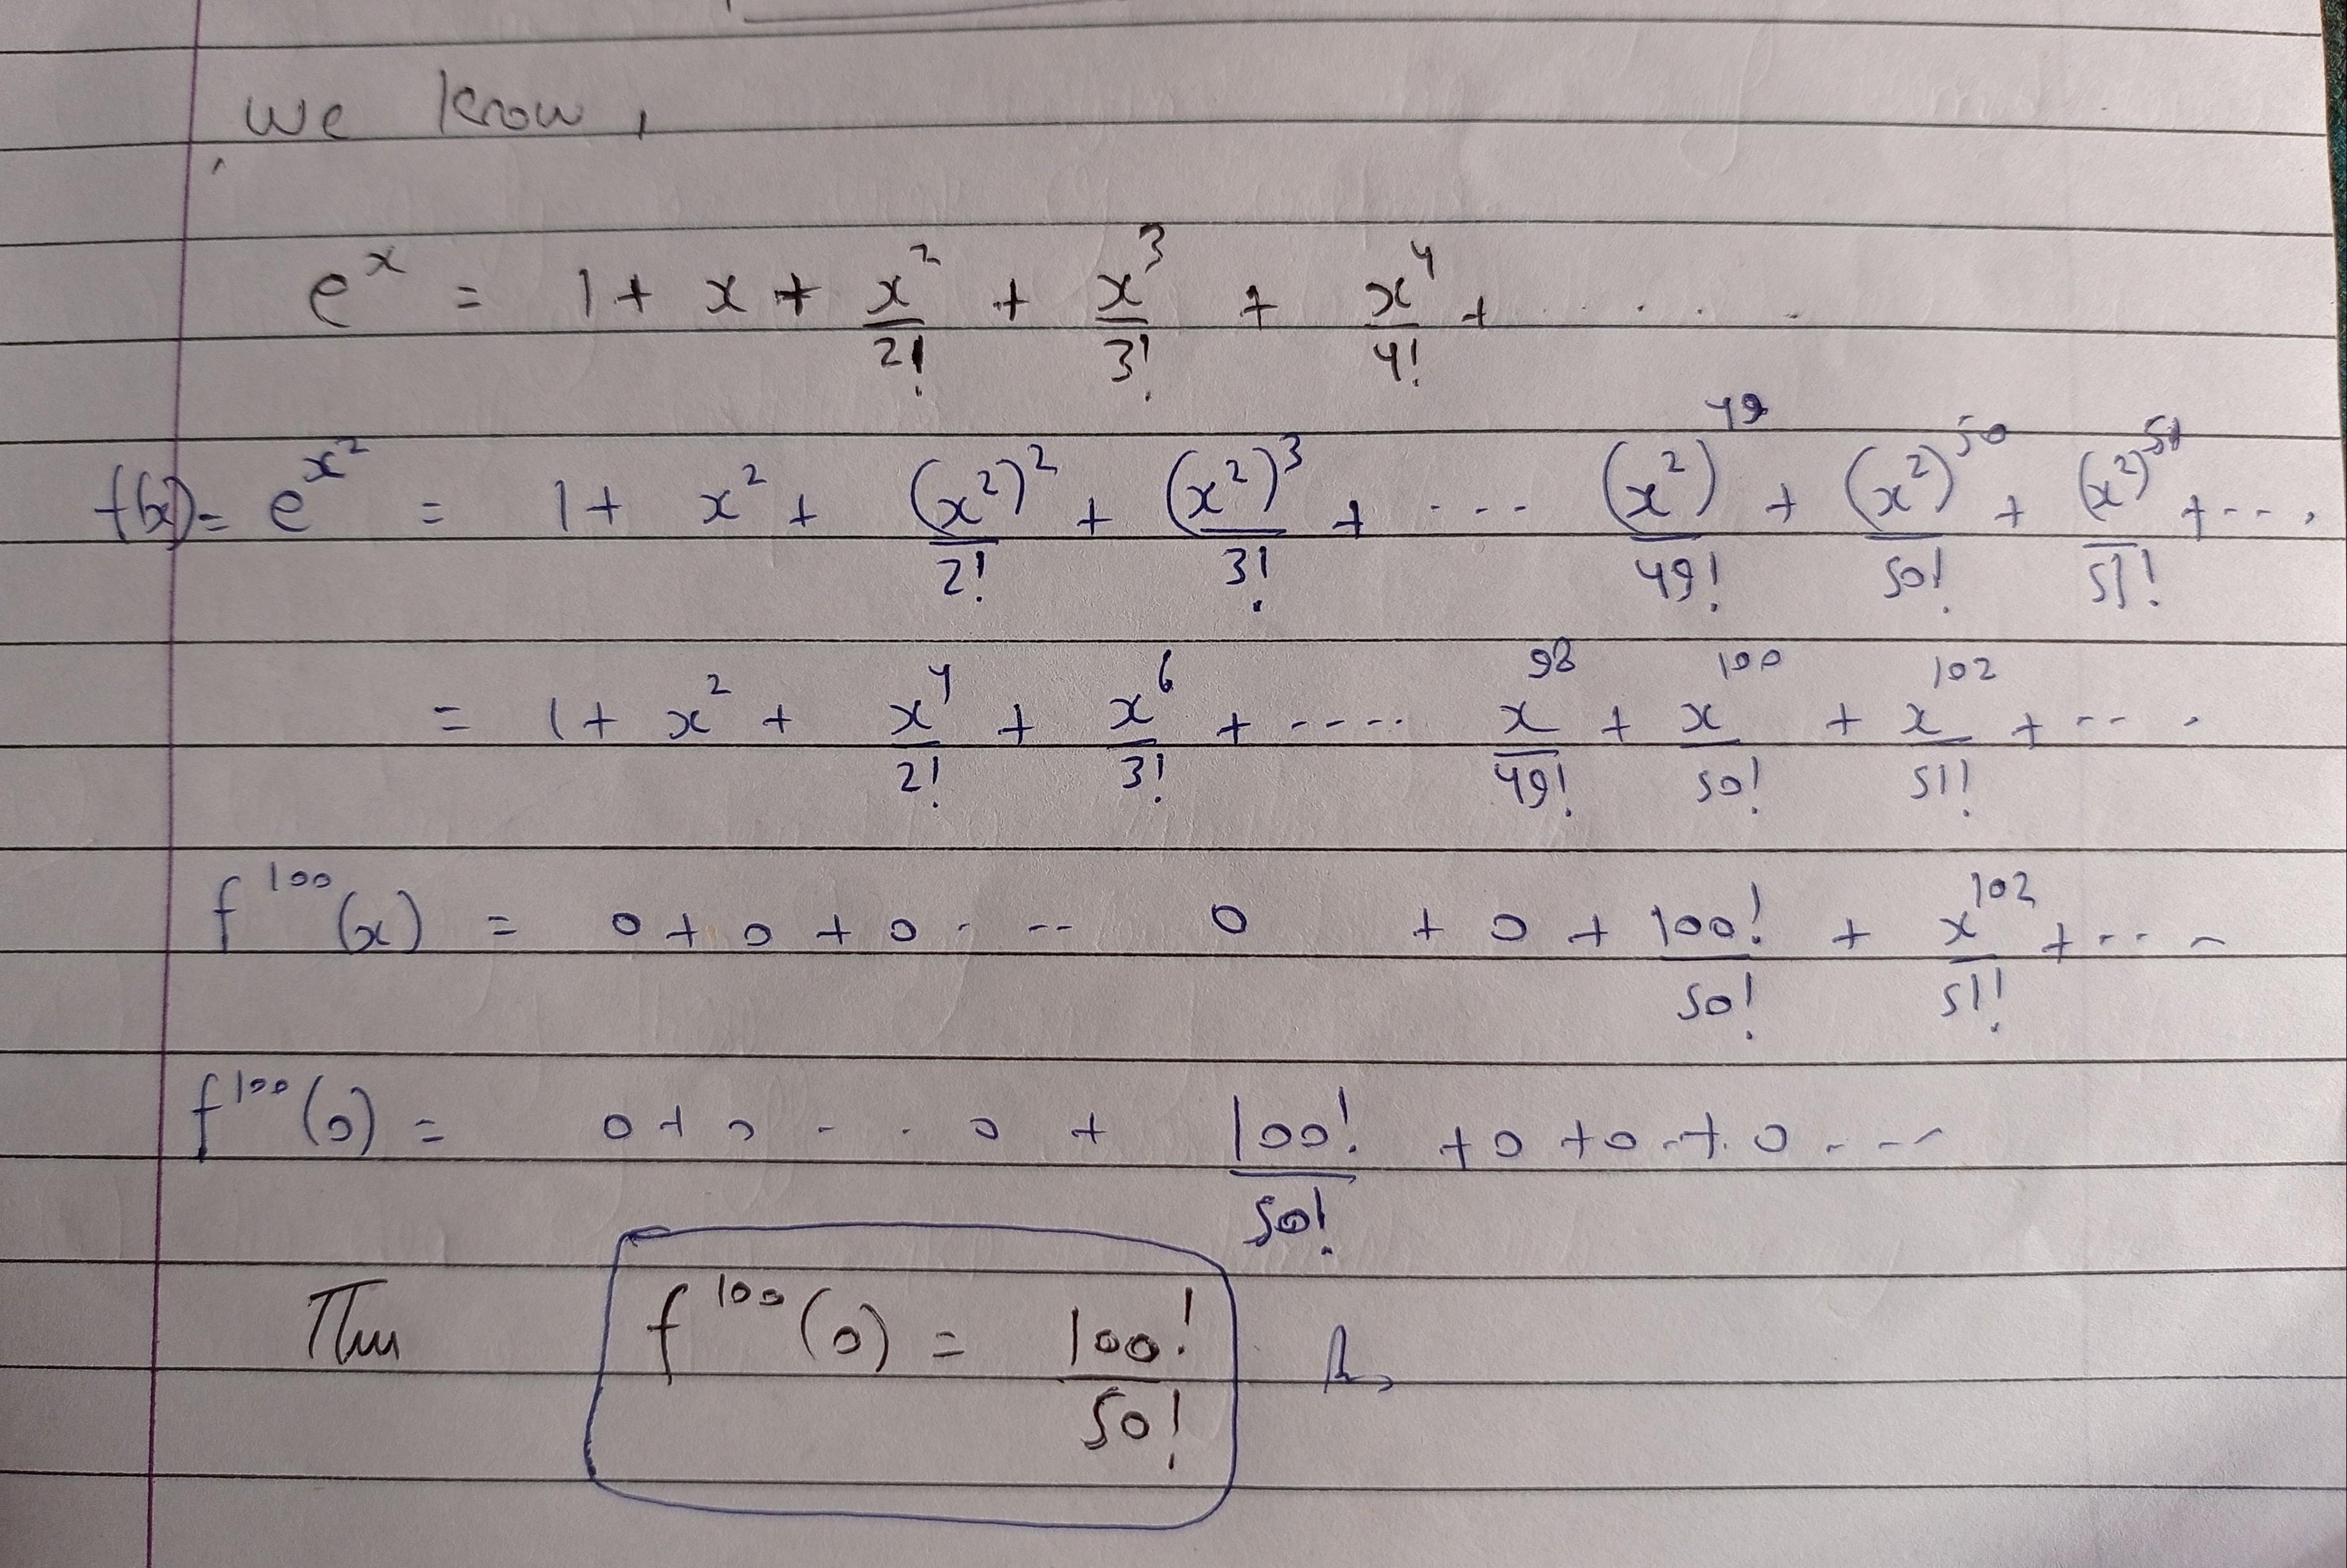 We know,
e^x = 1 + x + x^2/2! + x^3/3! + x^4/4! + . . . .
f(x) = e^{x^2} = 1 + x^2 + (x^2)^2/2! + (x^2)^3/3! + ... (x^2)^49/49! + (x^2)^50/50! + (x^2)^51/51! + ....
= 1 + x^2 + x^4/2! + x^6/3! + .... x^98/49! + x^100/50! + x^102/51! + ...
f^100(x) = 0 + 0 + 0 . -- 0 + 0 + 100!/50! + x^102/51! + ...
f^100(0) = 0 + 0 - . 0 + 100!/50! + 0 + 0 + 0 . --
Thus f^100(0) = 100!/50!